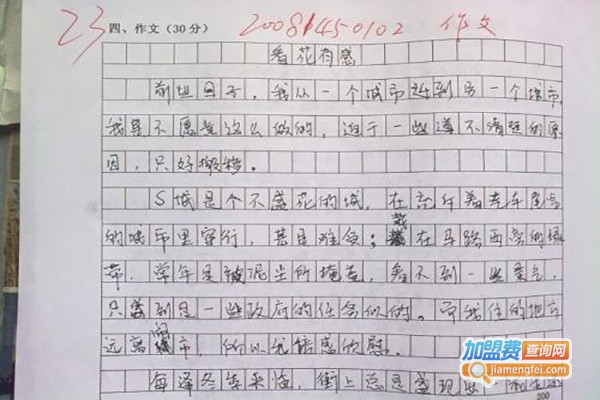 23
四、作文(30分)
2008145-0102 作文
看花有感
前些日子,我从一个城市迁到另一个城市,
我是不愿意这么做的,迫于一些道不清楚的原
因,只好搬移。
S城是个不盛花的城,在充斥着汽车尾气
的城市里穿行,甚是难受;栽在马路两旁的绿
带,常年是被泥尘所掩盖,看不到一些景气,
只感到是一些政府的任务似的。可我住的地方
远离闹市,所以我能感欣慰。
每逢冬季来临,街上总是盛现出
200
加盟费查询网
jiamengfei.com